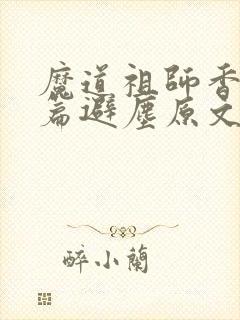 魔道祖師香
篇避塵原文
醉小蘭